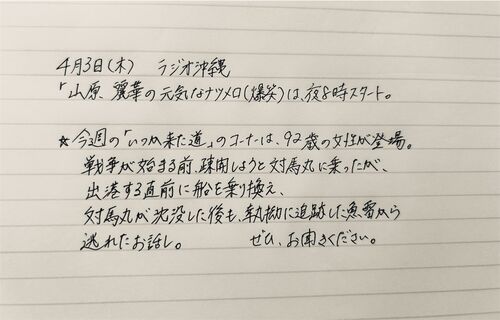 4月3日(木) ラジオ沖縄
「山原 麗華の元気なナツメロ(爆笑)は、夜8時スタート。
☆今週の「いつか来た道」のコーナーは、92歳の女性が登場。
戦争が始まる前、疎開しようと対馬丸に乗ったが、
出港する直前に船を乗り換え、
対馬丸が沈没した後も、執拗に追跡した魚雷から
逃れたお話し。 ぜひ、お聞きください。